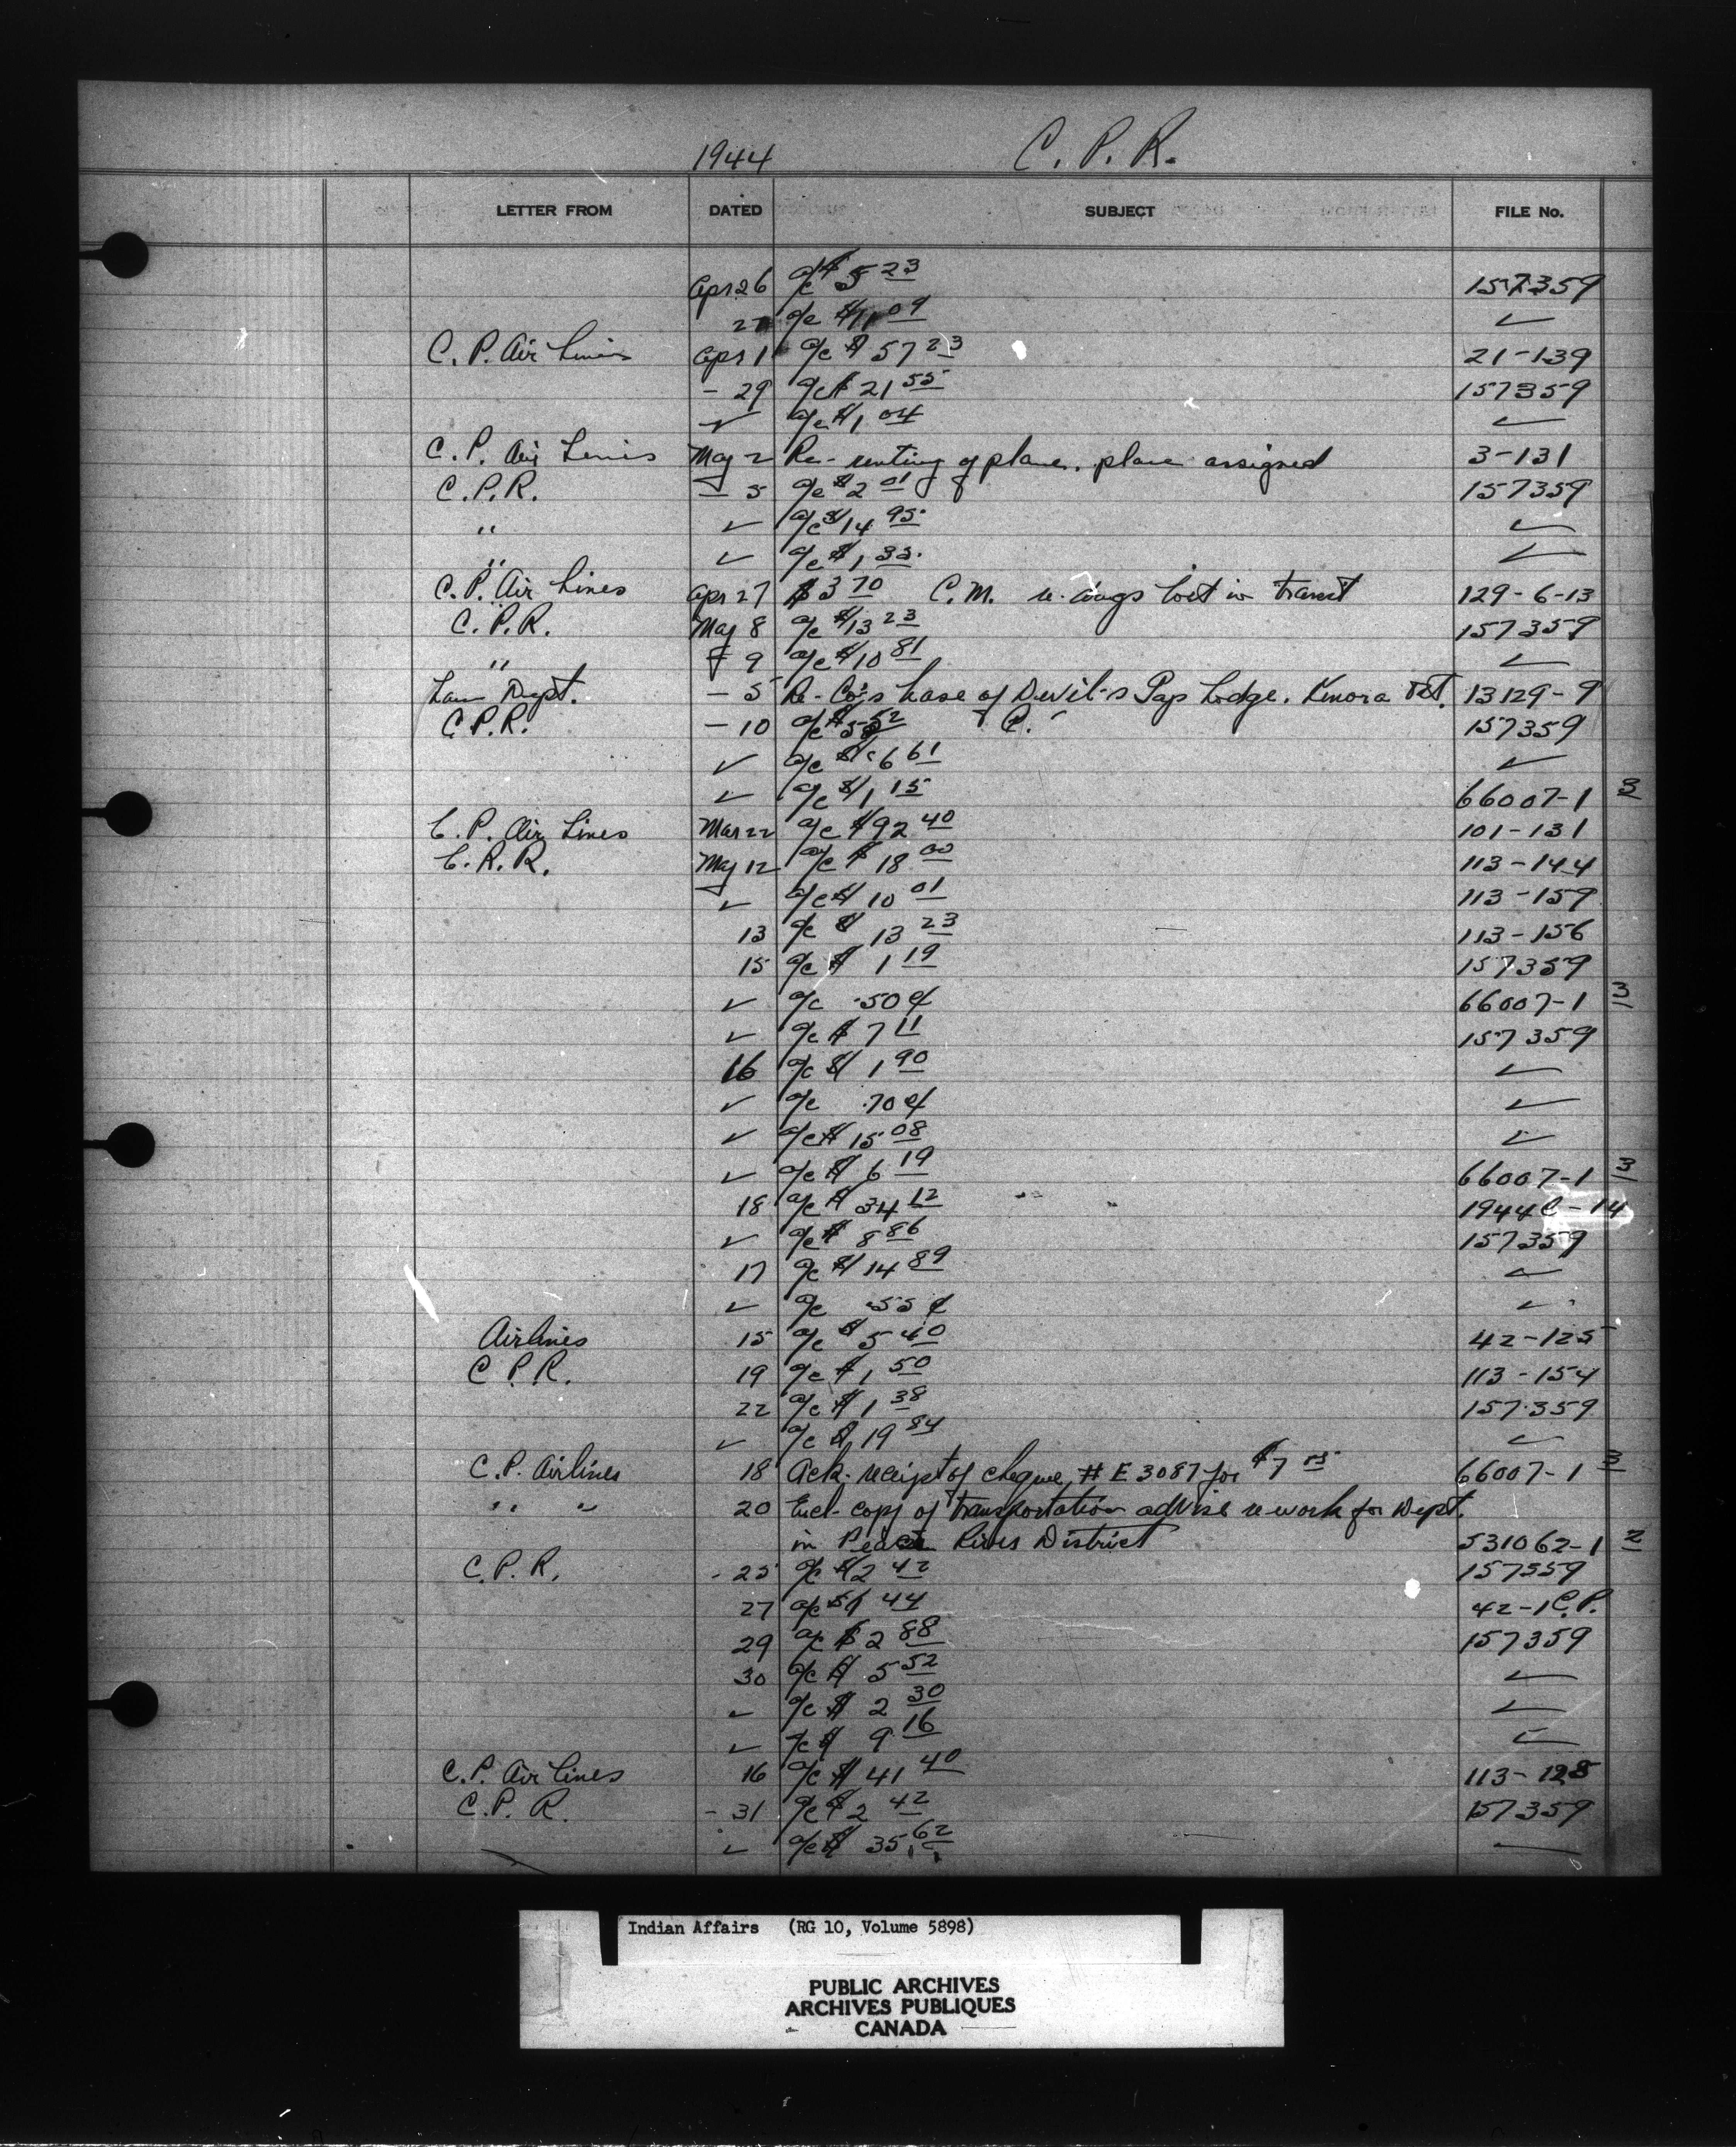 1944 C. P. R.
LETTER FROM DATED SUBJECT FILE No.
Apr 26 a/c $ 5 23 157359
27 a/c $ 09 ✓
C. P. Air Lines Apr 1 a/c $ 57 23 21-139
- 29 a/c $ 21 55 157359
✓ a/c $ 1 04 ✓
C. P. Air Lines May 2 Re- renting of plane. plane assigned 3-131
C. P. R. - 5 a/c $ 2 01 157359
" ✓ a/c $ 14 95 ✓
" ✓ a/c $ 1 35 ✓
C. P. Air Lines Apr 27 $ 3 70 C. M. re. lost in transit 129-6-13
C. P. R. May 8 a/c $ 13 23 157359
" - 9 a/c $ 10 81 ✓
Law Dept. - 5 Re- Co's lease of Devil's Gap Lodge. Kenora Dst. 13129-9
C. P. R. - 10 a/c $ 52 P. 157359
✓ a/c $ 6 61 ✓
✓ a/c $ 1 15 66007-1 3
C. P. Air Lines Mar 22 a/c $ 92 40 101-131
C. P. R. May 12 a/c $ 18 00 113-144
✓ a/c $ 10 01 113-159
13 a/c $ 13 23 113-156
15 a/c $ 1 19 157359
✓ a/c .50 ¢ 66007-1 3
✓ a/c $ 7 11 157359
16 a/c $ 1 90 ✓
✓ a/c .70 ¢ ✓
✓ a/c $ 15 08 ✓
✓ a/c $ 6 19 66007-1 3
18 a/c $ 34 12 1944C-14
✓ a/c $ 8 86 157359
17 a/c $ 14 89 ✓
✓ a/c .55 ¢ ✓
Airlines 15 a/c $ 5 40 42-125
C. P. R. 19 a/c $ 1 50 113-154
22 a/c $ 1 38 157359
✓ a/c $ 19 84 ✓
C. P. Airlines 18 Ack. receipt of cheque # E 3087 for $ 7 66007-1 3
" " 20 Encl- copy of transportation advise re work for Dept.
in Peace River District 531062-1 2
C. P. R. - 25 a/c $ 2 42 157359
27 a/c $ 1 44 42-1 C.P.
29 a/c $ 2 88 157359
30 a/c $ 5 52 ✓
✓ a/c $ 2 30 ✓
✓ a/c $ 9 16 ✓
C. P. Air Lines 16 a/c $ 41 40 113-128
C. P. R. - 31 a/c $ 2 42 157359
✓ a/c $ 35 62
Indian Affairs (RG 10, Volume 5898)
PUBLIC ARCHIVES
ARCHIVES PUBLIQUES
CANADA